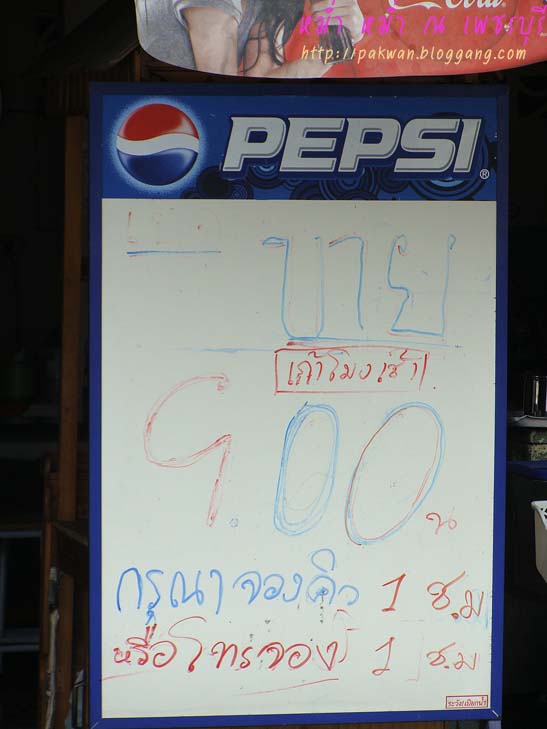 Cola
หม่ำ หม่ำ ณ เพชรบุรี
http://pakwan.bloggang.com
PEPSI®
ขาย
เก้าโมงเช้า
9.00 น
กรุณาจองคิว 1 ช.ม
หรือโทรจอง 1 ช.ม